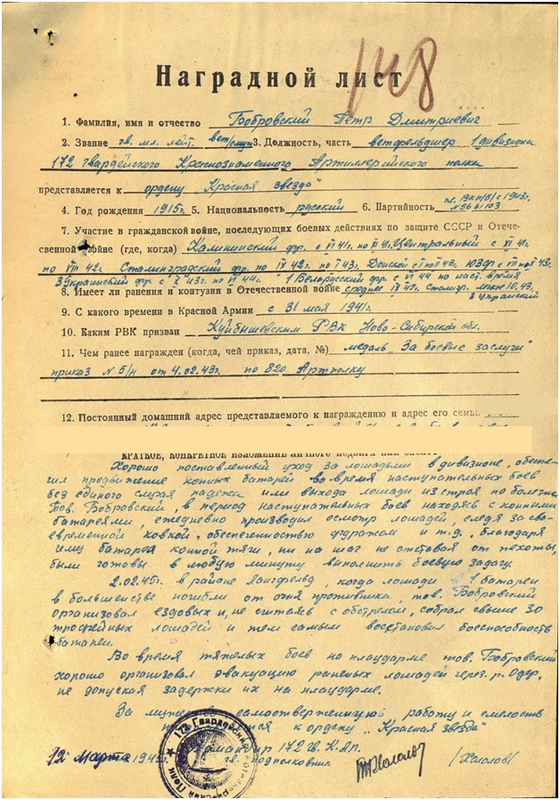 148
Наградной лист
1. Фамилия, имя и отчество Бобровский Петр Дмитриевич
2. Звание гв. мл. лейт. вет/служ 3. Должность, часть ветфельдшер 1 дивизиона
172 гвардейского Краснознаменного Артиллерийского полка
представляется к ордену „Красная звезда"
4. Год рождения 1915г. 5. Национальность русский 6. Партийность ВКП/б/ с 1943г.
7. Участие в гражданской войне, последующих боевых действиях по защите СССР и Отече-
ственной войне (где, когда) Калининский фр. с VI 41г. по 41 Центральный с VI 41
по VIII 42г. Сталинградский фр. по IX 42г. по I 43г. Донской
3 Украинский фр. с X 43г. по VI 44г. 1 Белорусский фр. с VI 44 по наст. время
8. Имеет ли ранения и контузии в Отечественной войне
3 Украинский
9. С какого времени в Красной Армии с 31 мая 1941г.
10. Каким РВК призван Куйбышевским РВК Ново-Сибирская обл.
11. Чем ранее награжден (когда, чей приказ, дата, №) медаль „За боевые заслуги"
приказ № 5/н от 4.02.43г. по 820 Артполку
12. Постоянный домашний адрес представляемого к награждению и адрес его семьи
Хорошо поставленный уход за лошадьми в дивизионе, обеспе-
чил продвижение конных батарей во время наступательных боев
без единого случая падежа или выхода лошади из строя по болезни.
Тов. Бобровский, в период наступательных боев находясь с конными
батареями, ежедневно производил осмотр лошадей, следя за сво-
евременной ковкой, обеспеченностью фуражом и т.д., благодаря
чему батареи конной тяги, ни на шаг не отставая от пехоты,
были готовы в любую минуту выполнить боевую задачу.
2.02.45г. в районе Лангфельд, когда лошади 1 батареи
в большинстве погибли от огня противника, тов. Бобровский
организовал ездовых и, не считаясь с обстрелом, собрал свыше 30
трофейных лошадей и тем самым восстановил боеспособность
батареи.
Во время тяжелых боев на плацдарме тов. Бобровский
хорошо организовал эвакуацию раненых лошадей через р. Одер,
не допуская задержки их на плацдарме.
За мужество, самоотверженную работу и смелость
к ордену „Красная звезда"
Командир 172 гв. К.АП.
Марта 194 гв. подполковник /Хололов/
172 Гвардейский Артиллерийский Полк